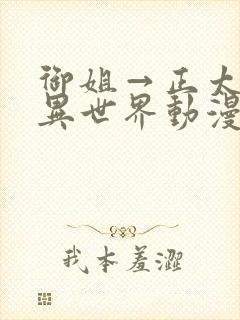 御姐→正太
異世界動漫
我本羞澀